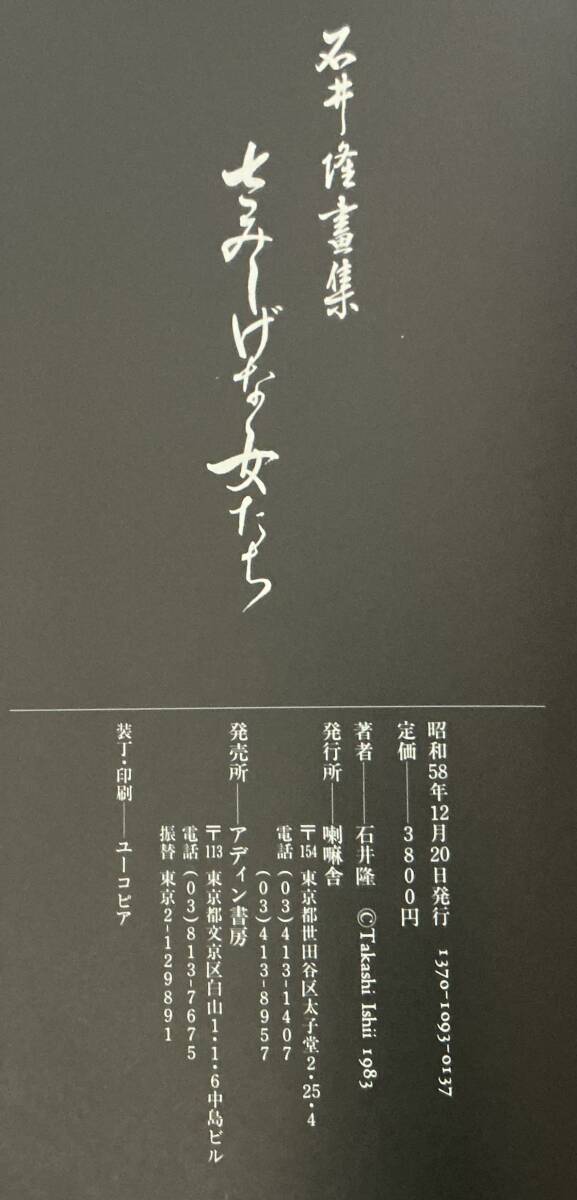 石井隆畫集
さみしげな女たち
昭和58年12月20日発行　1370-1093-0137
定価――3800円
著者――石井隆　©Takashi Ishii 1983
発行所――喇嘛舎
〒154 東京都世田谷区太子堂2・25・4
電話(03)413-1407
(03)413-8957
発売所――アディン書房
〒113 東京都文京区白山1・1・6中島ビル
電話(03)813-7675
振替 東京2-129891
装丁・印刷――ユーコピア